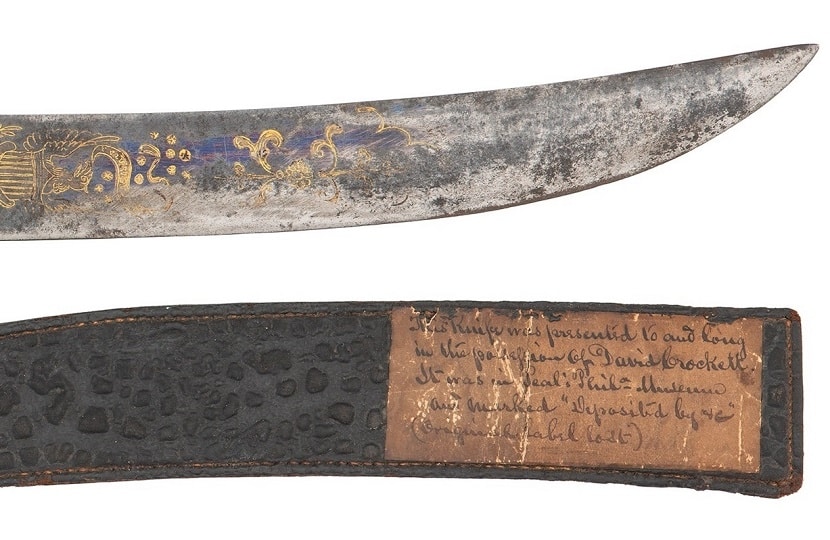 This Knife was presented to and long
in the possession of David Crockett.
It was in Peal's Phila Museum
and marked "Deposited by &c"
(Original Label lost)